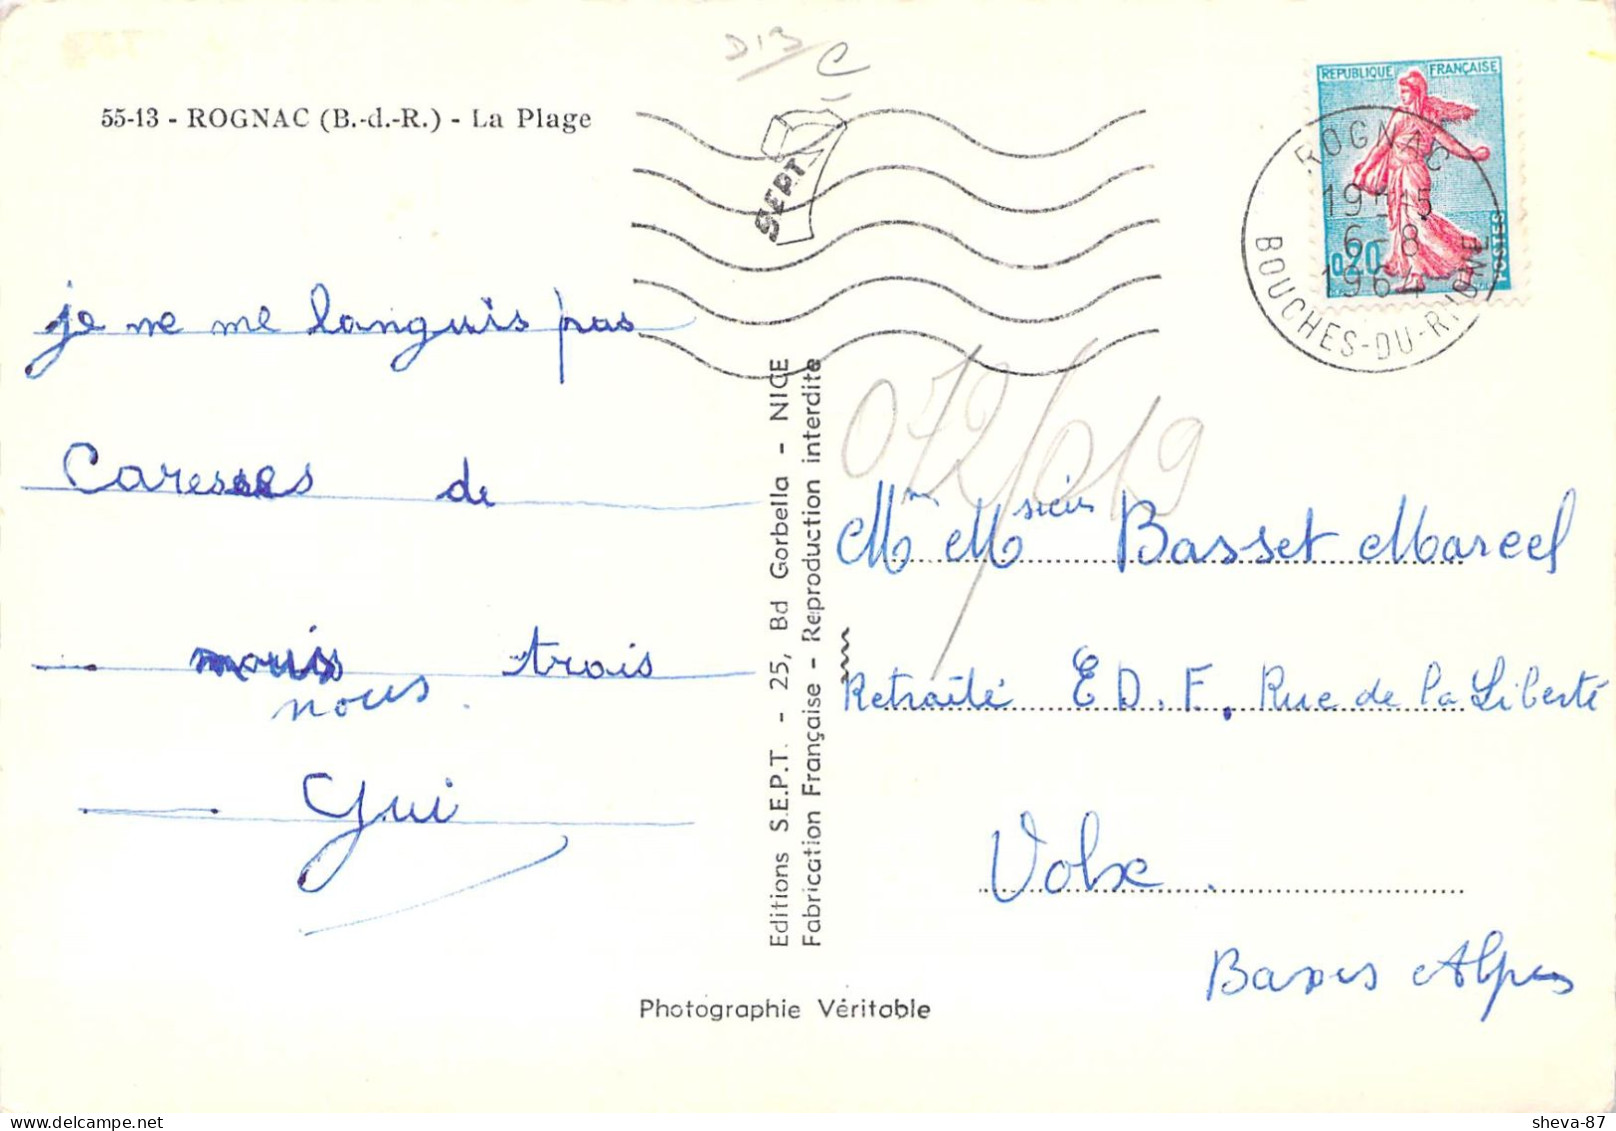 D13 C
55-13 - ROGNAC (B.-d.-R.) - La Plage
SEPT
REPUBLIQUE FRANÇAISE
0,20
POSTES
ROGNAC
6-8
1964
BOUCHES-DU-RHONE
je ne me languis pas
Caresses de
trois
nous.
Gui
Editions S.E.P.T. - 25, Bd Gorbella - NICE
Fabrication Française - Reproduction interdite
072/019
Mm Msieur Basset Marcel
Retraité E D. F. Rue de la Liberté
Volx.
Basses Alpes
Photographie Véritable
sheva-87